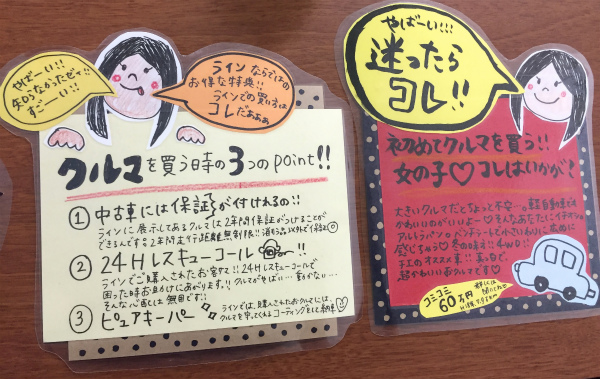 やばーい!!
知らなかったぜ!!
すごーい!!
ライン ならではの
お得な特典!!
ラインでの買い方は
コレだぁぁぁ
クルマを買う時の3つのpoint!!
① 中古車には保証が付けれるの!!
ラインに展示してあるクルマは2年間保証がつけることが
できるんです。2年間走行距離無制限!!
② 24Hレスキューコール
ラインでご購入されたお客さま!! 24Hレスキューコールで
困った時お助けにあがります!! クルマがやばい… 動かない…
そんな心配は無用です!!
③ ピュアキーパー
ラインでは、購入されたおクルマには、
クルマを守ってくれるコーティングをして納車♡
やばーい!!!
迷ったら
コレ!!
初めてクルマを買う!!
女の子♡コレはいかが?
大きいクルマだとちょっと不安…
かわいいのがいいよー♡そんなあなたにイチオシ
アルトラパン
感じちゃう♡冬の味方!! 4WD!!
チエのオススメ車!!
超かわいいおクルマです♡
コミコミ
60万円